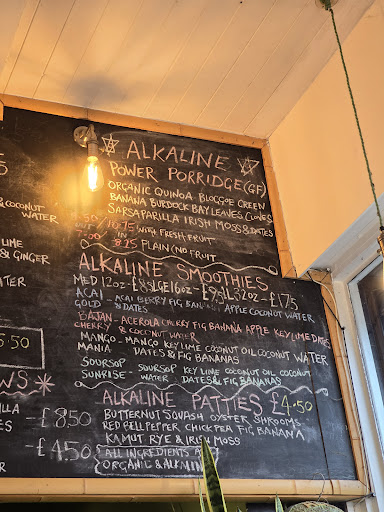 ALKALINE
POWER PORRIDGE (GF)
ORGANIC QUINOA BLOGGOE GREEN
BANANA BURDOCK BAY LEAVES CLOVES
SARSAPARILLA IRISH MOSS & DATES
WITH FRESH FRUIT
8.25 PLAIN (NO FRUIT
& COCONUT
WATER
LIME
& GINGER
WATER
5.50
ALKALINE SMOOTHIES
MED 12oz - £8.5 LGE 16oz - £9.5 L 32oz - £17.5
ACAI - ACAI BERRY FIG BANANA APPLE COCONUT WATER
GOLD & DATES
BAJAN - ACEROLA CHERRY FIG BANANA APPLE KEY LIME DATES
CHERRY & COCONUT WATER
MANGO - MANGO KEY LIME COCONUT OIL COCONUT WATER
MANIA DATES & FIG BANANAS
SOURSOP SOURSOP KEY LIME COCONUT OIL COCONUT
SUNRISE - WATER DATES & FIG BANANAS
ALKALINE PATTIES £4.50
BUTTERNUT SQUASH OYSTER SHROOMS
RED BELL PEPPER CHICKPEA FIG BANANA
KAMUT RYE & IRISH MOSS
ALL INGREDIENTS ARE
ORGANIC & ALKALINE
WS
- £8.50
- £4.50